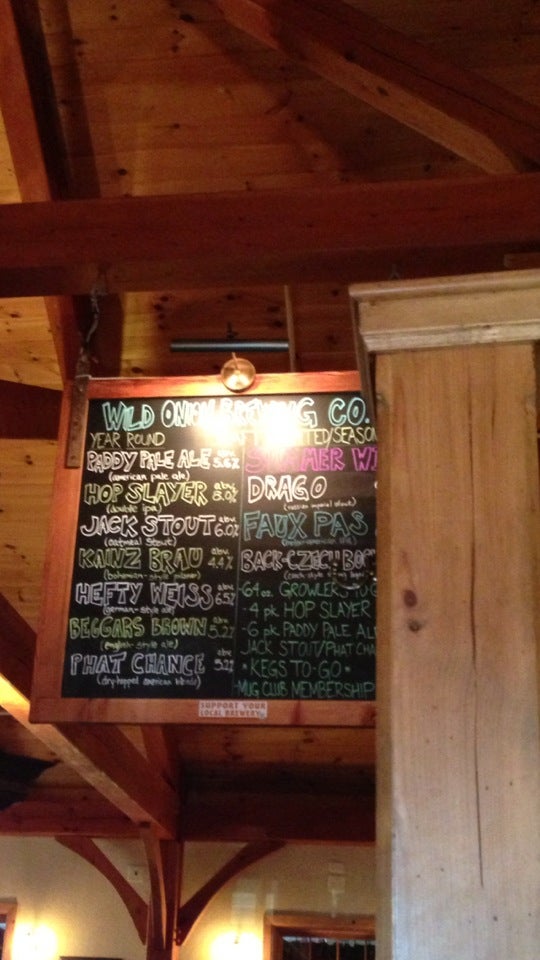 WILD ONION BREWING CO.
YEAR ROUND
PADDY PALE ALE abv 5.6%
(american pale ale)
HOP SLAYER abv
(double ipa)
JACK STOUT abv 6.0%
(oatmeal stout)
KAINZ BRAU abv 4.4%
(bohemian-style pilsner)
HEFTY WEISS abv 5.5%
(german-style ale)
BEGGARS BROWN abv 5.2%
(english-style ale)
PHAT CHANCE abv 5.2%
(dry-hopped american blonde)
LIMITED/SEASON
SUMMER WI
DRAGO
(russian imperial stout)
FAUX PAS
BACK-CZECH BOCK
-64 oz. GROWLER-TO-G
- 4 pk HOP SLAYER
- 6 pk PADDY PALE AL
JACK STOUT/PHAT CHA
* KEGS TO-GO *
-MUG CLUB MEMBERSHIP
SUPPORT YOUR
LOCAL BREWERY